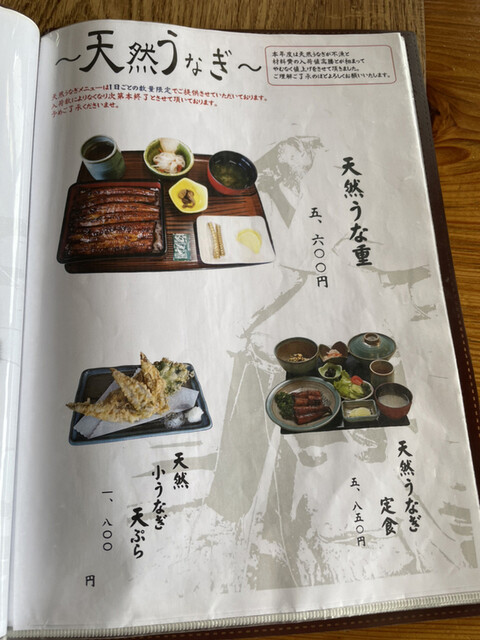 ～天然うなぎ～
本年度は天然うなぎが不漁と
材料費の入荷値高騰とが相まって
やむなく値上げをさせて頂きました。
ご理解ご了承のほどよろしくお願いいたします。
天然うなぎメニューは1日ごとの数量限定でご提供させていただいております。
入荷数によりなくなり次第本終了とさせて頂いております。
予めご了承くださいませ。
天然うな重
五、六〇〇円
天然
小うなぎ
天ぷら
一、八〇〇円
天然うなぎ
定食
五、八五〇円